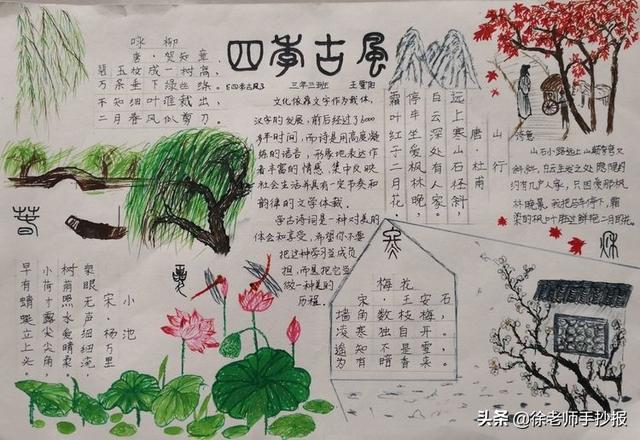 四季古风
《四季古风》 三年三班
咏柳
唐·贺知章
碧玉妆成一树高,
万条垂下绿丝绦。
不知细叶谁裁出,
二月春风似剪刀。
文化依靠文字作为载体,
汉字的发展,前后经过了6000
多年时间,而诗是用高度凝
练的语言,形象地表达作
者丰富的情感,集中反映
社会生活并具有一定节奏和
韵律的文学体裁。
学古诗词是一种对美的
体会和享受,希望你不要
把这种学习当成负
担,而是把它当
做一种美的
历程。
山行
唐·杜甫
远上寒山石径斜,
白云深处有人家。
停车坐爱枫林晚,
霜叶红于二月花。
诗意
山石小路远上山巅弯弯又
斜斜,白云生处之处隐隐约
约有几户人家,只因爱那枫
林晚景,我把马车停下,霜
染的枫叶胜过鲜艳二月的花。
春
夏
秋
小池
宋·杨万里
泉眼无声细细流,
树荫照水爱晴柔。
小荷才露尖尖角,
早有蜻蜓立上头
梅花
宋·王安石
墙角数枝梅,
凌寒独自开。
遥知不是雪,
为有暗香来。
头条@徐老师手抄报